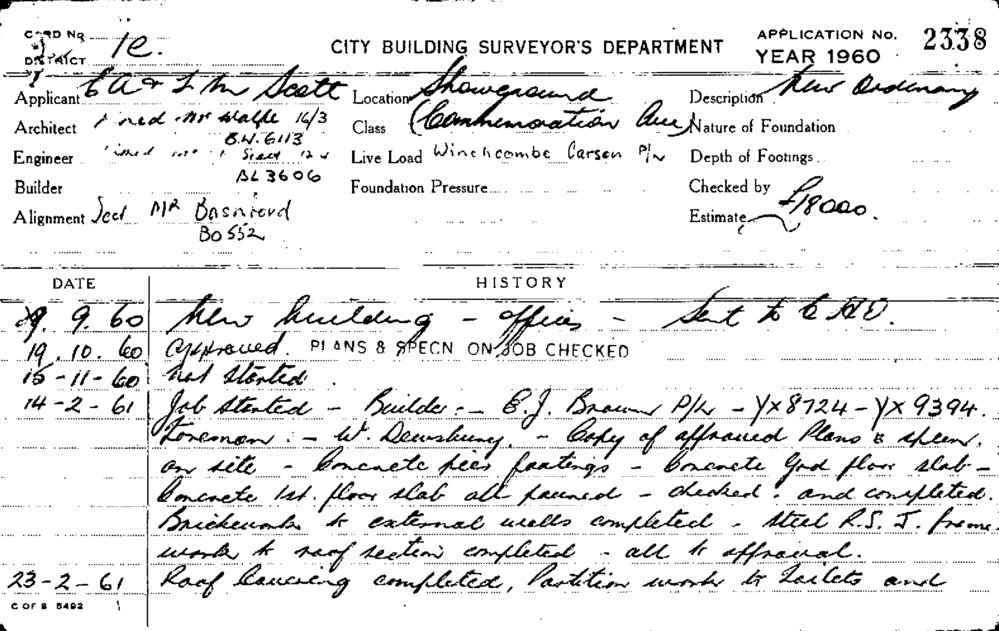 CARD No.
DISTRICT 1e.
CITY BUILDING SURVEYOR'S DEPARTMENT
APPLICATION No. 2338
YEAR 1960
Applicant E A & F M Scott Location Showground Description New Ordinary
Architect Mr Wolfe 16/3 Class (Commemoration Ave) Nature of Foundation
BW.6113
Engineer Live Load Winchcombe Carson P/L Depth of Footings
BL3606
Builder Foundation Pressure Checked by
Alignment Ject MR Basnierd Estimate £18000.
BO552
DATE HISTORY
9. 9. 60 New building - offices - Sent to C.H.O.
19. 10. 60 approved. PLANS & SPECN ON JOB CHECKED
15-11-60 not started.
14-2-61 Job started - Builder:- E.J. Brown P/L - YX8724 - YX9394.
Foreman:- W. Dewsbury. - Copy of approved Plans & specn.
on site - Concrete pier footings - Concrete Grd floor slab -
Concrete 1st. floor slab all poured - checked. and completed.
Brickwork to external walls completed - steel R.S.J. frame
work to roof section completed - all to approval.
23-2-61 Roof Covering completed, Partition work to Toilets and
C OF B 5492